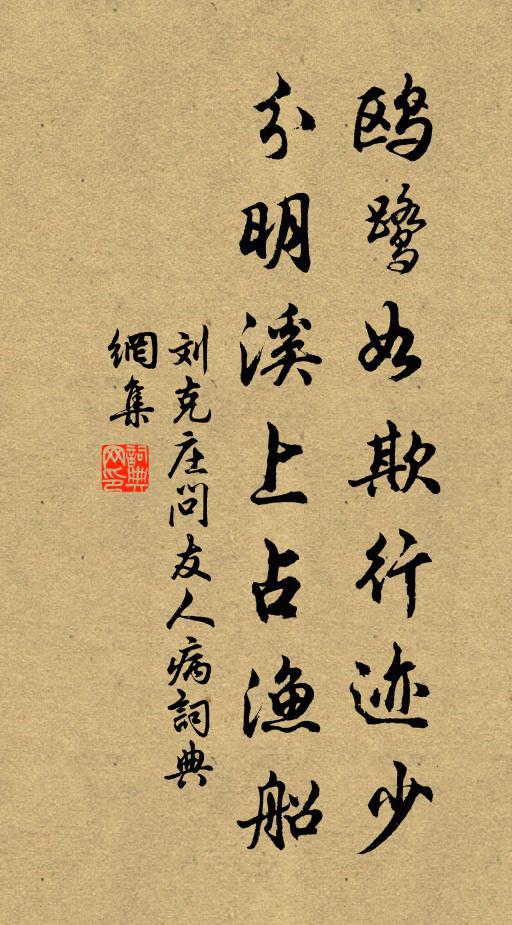 鸥鹭如欺行迹少
分明溪上占渔船
刘克庄问友人病詞典
網集
詞典网印